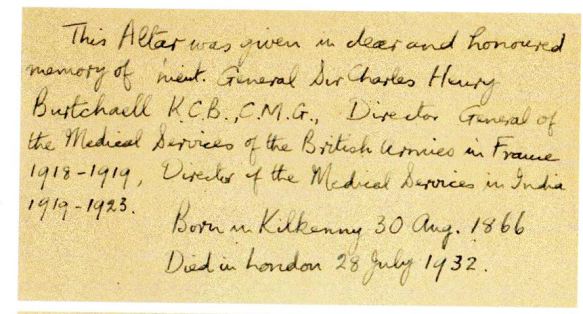 This Altar was given in dear and honoured
memory of Lieut. General Sir Charles Henry
Burtchaell K.C.B., C.M.G., Director General of
the Medical Services of the British Armies in France
1918-1919, Director of the Medical Services in India
1919-1923.
Born in Kilkenny 30 Aug. 1866
Died in London 28 July 1932.